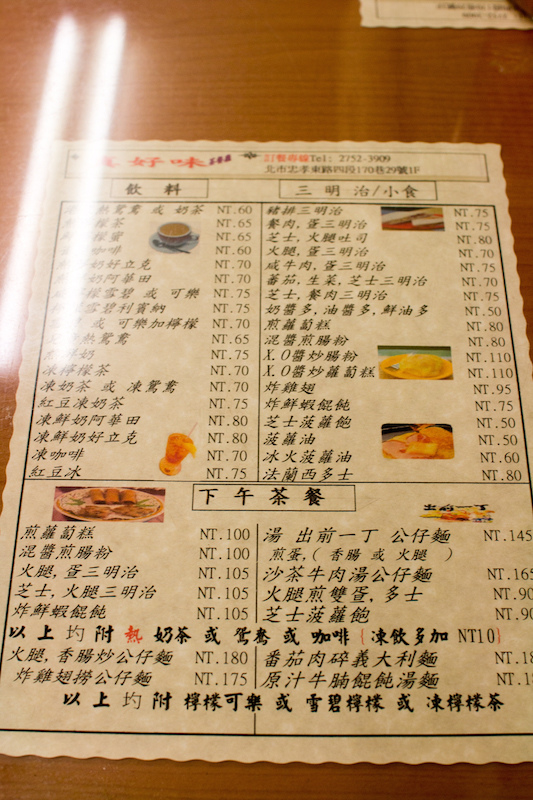 好味
訂餐專線Tel: 2752-3909
北市忠孝東路四段170巷29號1F
飲 料
熱鴛鴦 或 奶茶 NT.60
檬茶 NT.65
檬蜜 NT.65
咖啡 NT.60
奶好立克 NT.70
奶阿華田 NT.70
檬雪碧 或 可樂 NT.75
雪碧利賓納 NT.75
或 可樂加檸檬 NT.70
熱鴛鴦 NT.65
奶 NT.75
凍檸檬茶 NT.70
凍奶茶 或 凍鴛鴦 NT.70
紅豆凍奶茶 NT.75
凍鮮奶阿華田 NT.80
凍鮮奶好立克 NT.80
凍咖啡 NT.70
紅豆冰 NT.75
三 明 治/小食
豬排三明治 NT.75
餐肉,蛋三明治 NT.75
芝士,火腿吐司 NT.80
火腿,蛋三明治 NT.70
咸牛肉,蛋三明治 NT.75
番茄,生菜,芝士三明治 NT.70
芝士,餐肉三明治 NT.75
奶醬多,油醬多,鮮油多 NT.50
煎蘿蔔糕 NT.80
混醬煎腸粉 NT.80
X.O醬炒腸粉 NT.110
X.O醬炒蘿蔔糕 NT.110
炸雞翅 NT.95
炸鮮蝦餛飩 NT.75
芝士菠蘿飽 NT.50
菠蘿油 NT.50
冰火菠蘿油 NT.60
法蘭西多士 NT.80
下 午 茶 餐
煎蘿蔔糕 NT.100
混醬煎腸粉 NT.100
火腿,蛋三明治 NT.105
芝士,火腿三明治 NT.105
炸鮮蝦餛飩 NT.105
出前一丁
湯 出前一丁 公仔麵 NT.145
煎蛋,( 香腸 或 火腿 )
沙茶牛肉湯公仔麵 NT.165
火腿煎雙蛋,多士 NT.90
芝士菠蘿飽 NT.90
以 上 圴 附 熱 奶茶 或 鴛鴦 或 咖啡 {凍飲多加 NT10}
火腿,香腸炒公仔麵 NT.180
炸雞翅撈公仔麵 NT.175
番茄肉碎義大利麵 NT.
原汁牛腩餛飩湯麵 NT.
以 上 圴 附 檸檬可樂 或 雪碧檸檬 或 凍檸檬茶